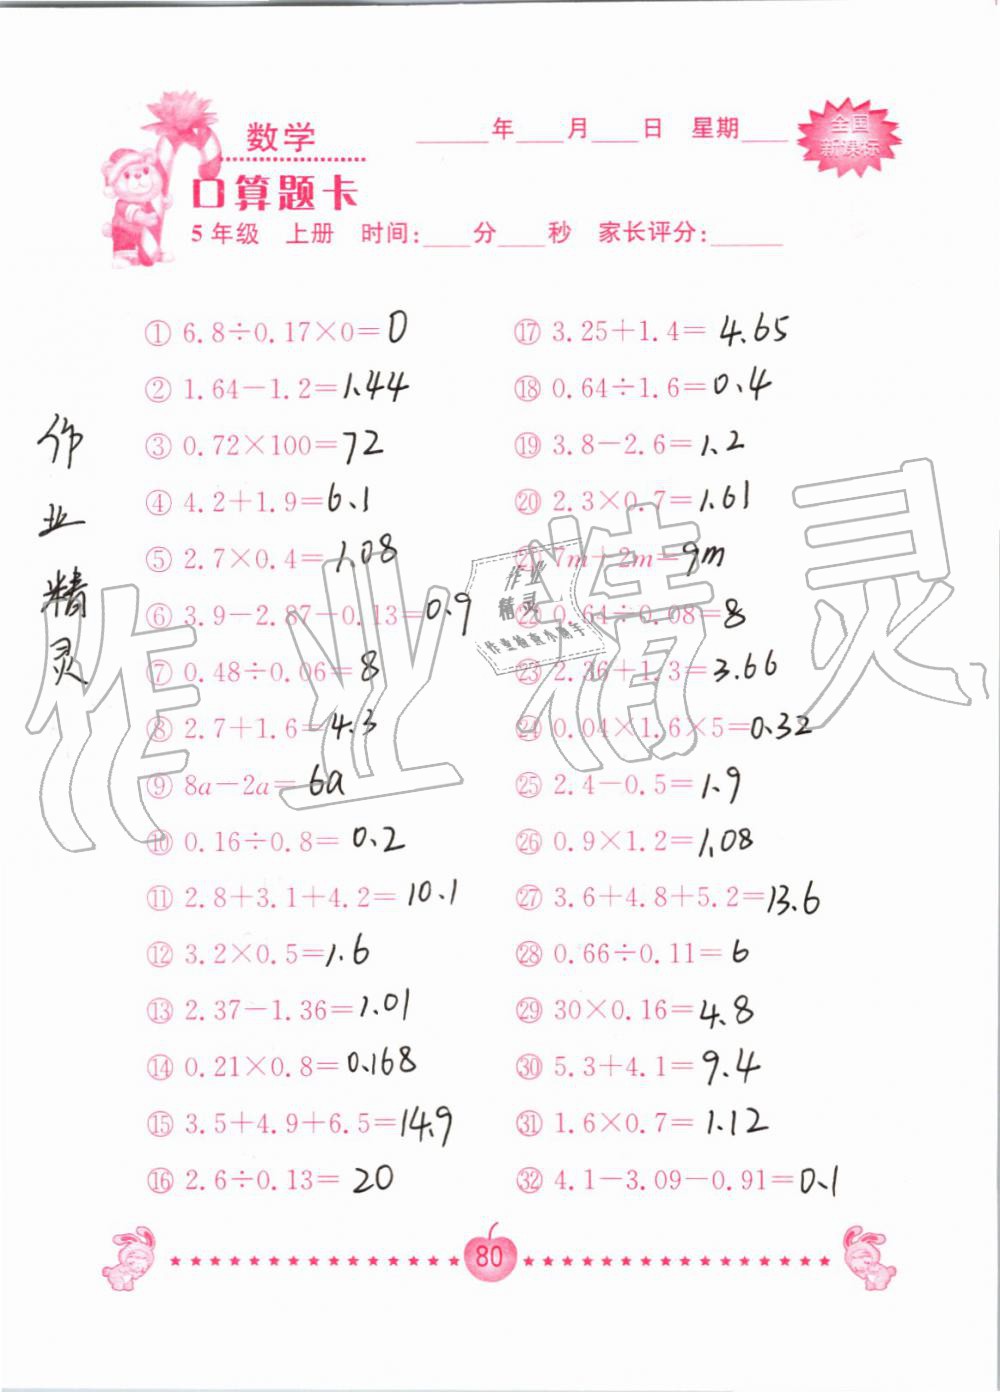 数学
____年____月____日 星期____
全国
新课标
口算题卡
5年级 上册 时间:____分____秒 家长评分:____
① 6.8÷0.17×0=0
② 1.64-1.2=1.44
③ 0.72×100=72
④ 4.2+1.9=6.1
⑤ 2.7×0.4=1.08
⑥ 3.9-2.87-0.13=0.9
⑦ 0.48÷0.06=8
⑧ 2.7+1.6=4.3
⑨ 8a-2a=6a
⑩ 0.16÷0.8=0.2
⑪ 2.8+3.1+4.2=10.1
⑫ 3.2×0.5=1.6
⑬ 2.37-1.36=1.01
⑭ 0.21×0.8=0.168
⑮ 3.5+4.9+6.5=14.9
⑯ 2.6÷0.13=20
⑰ 3.25+1.4=4.65
⑱ 0.64÷1.6=0.4
⑲ 3.8-2.6=1.2
⑳ 2.3×0.7=1.61
㉑ 7m+2m=9m
㉒ 0.64÷0.08=8
㉓ 2.36+1.3=3.66
㉔ 0.04×1.6×5=0.32
㉕ 2.4-0.5=1.9
㉖ 0.9×1.2=1.08
㉗ 3.6+4.8+5.2=13.6
㉘ 0.66÷0.11=6
㉙ 30×0.16=4.8
㉚ 5.3+4.1=9.4
㉛ 1.6×0.7=1.12
㉜ 4.1-3.09-0.91=0.1
作业精灵
作业精灵
作业
精灵
作业检查小助手
80